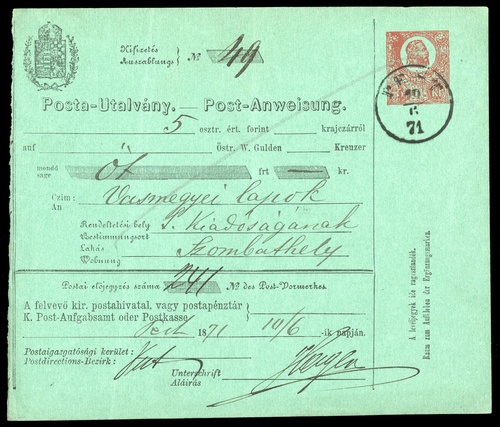 Kifizetés
Auszahlungs } № 49
Posta-Utalvány. — Post-Anweisung.
5 osztr. ért. forint krajczárról
auf Östr. W. Gulden Kreuzer
mondd
sage öt frt — kr.
Czim:
An Vasmegyei lapok
Rendeltetési hely
Bestimmungsort
Kiadóságának
Lakás
Wohnung
Szombathely
Postai előjegyzés száma 241 № des Post-Vormerkes.
A felvevő kir. postahivatal, vagy postapénztár
K. Post-Aufgabsamt oder Postkasse
Pest 1871 10/6 -ik napján.
Postaigazgatósági kerület:
Postdirections-Bezirk:
Pest
Unterschrift
Aláirás
KR
PEST
10
6
71
A levéljegyek ide ragasztandók.
Raum zum Aufkleben der Ergänzungsmarken.